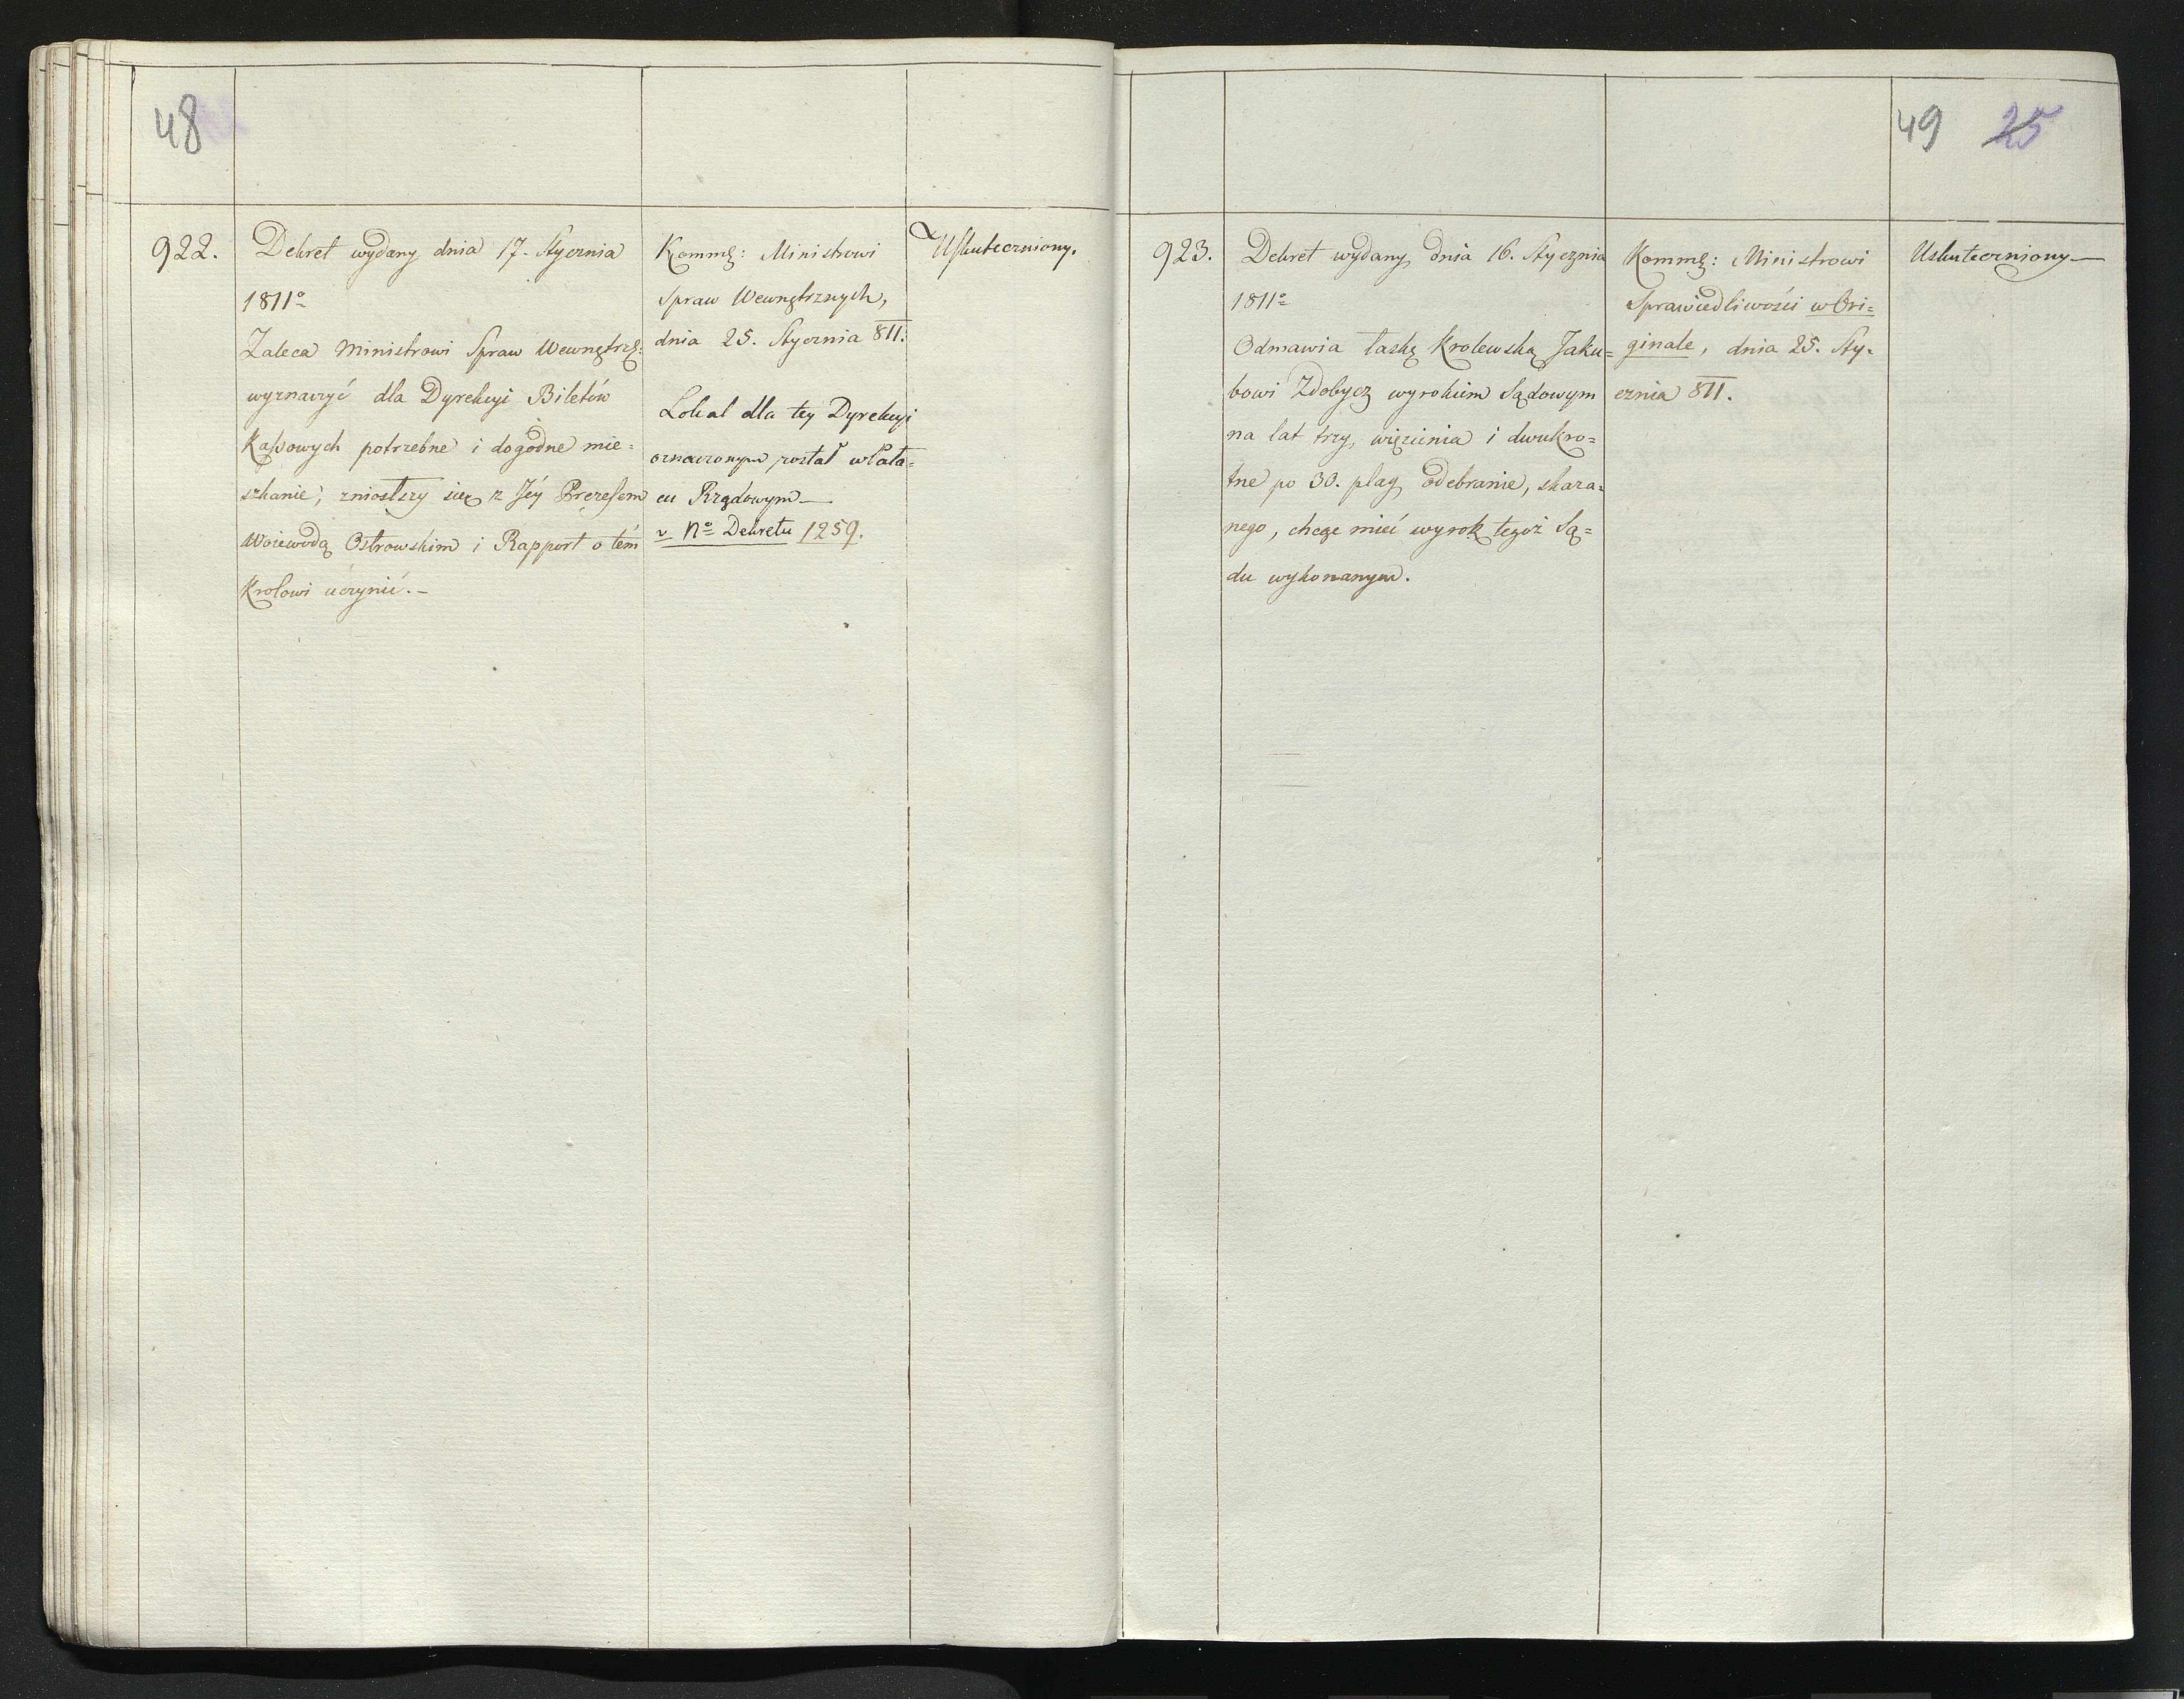 48
922.
Dekret wydany dnia 17. Stycznia
1811º
Zaleca Ministrowi Spraw Wewnętrz:
wyznaczyć dla Dyrekcyi Biletów
Kassowych potrzebne i dogodne mie=
szkanie, zniosłszy się z Jéy Prezesem
Woiewodą Ostrowskim i Rapport o tém
Krolowi uczynić.–
Kommę: Ministrowi
Spraw Wewnętrznych,
dnia 25. Stycznia 811.
Lokal dla tey Dyrekcyi
oznaczonym został w Pała=
cu Rządowym—
v Nº Dekretu 1259.
Uskuteczniony.
49 25
923.
Dekret wydany dnia 16. Stycznia
1811º
Odmawia łaskę Krolewską Jaku=
bowi Zdobycz wyrokiem Sądowym
na lat trzy, więzienia i dwukro=
tne po 30. plag odebranie, skara=
nego, chcąc mieć wyrok tegoż Są=
du wykonanym.
Kommę: Ministrowi
Sprawiedliwości w Ori=
ginale, dnia 25. Sty=
cznia 811.
Uskuteczniony—